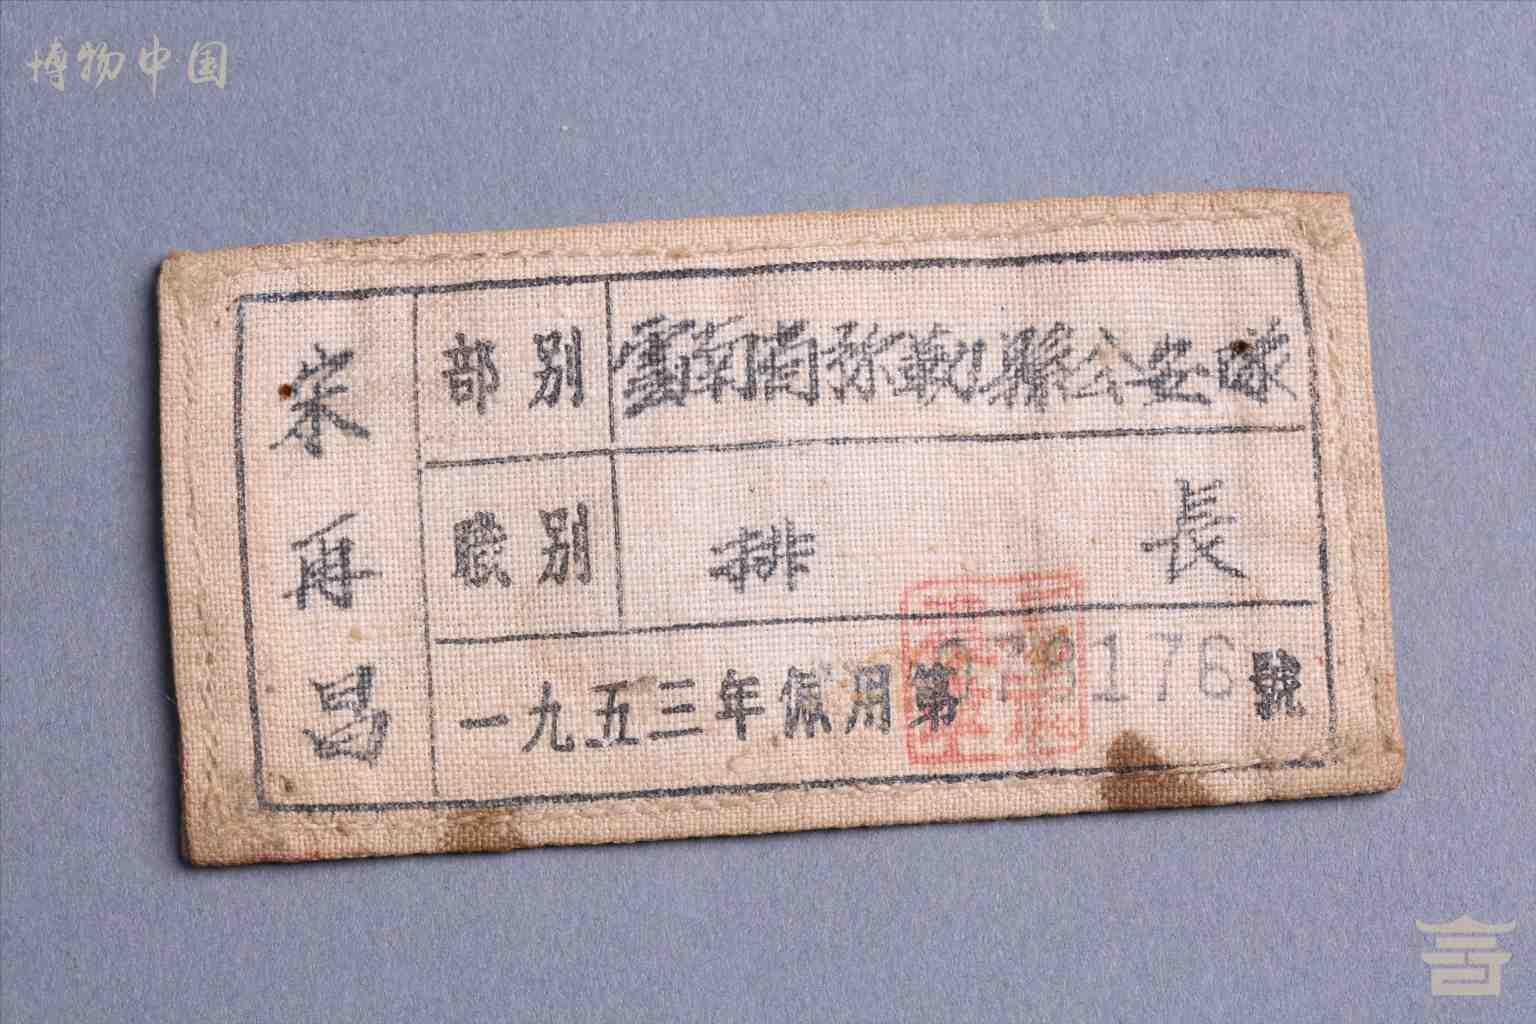 博物中国
宋再昌
部别 雲南省弥勒縣公安隊
職别 排長
一九五三年佩用第 078176 號